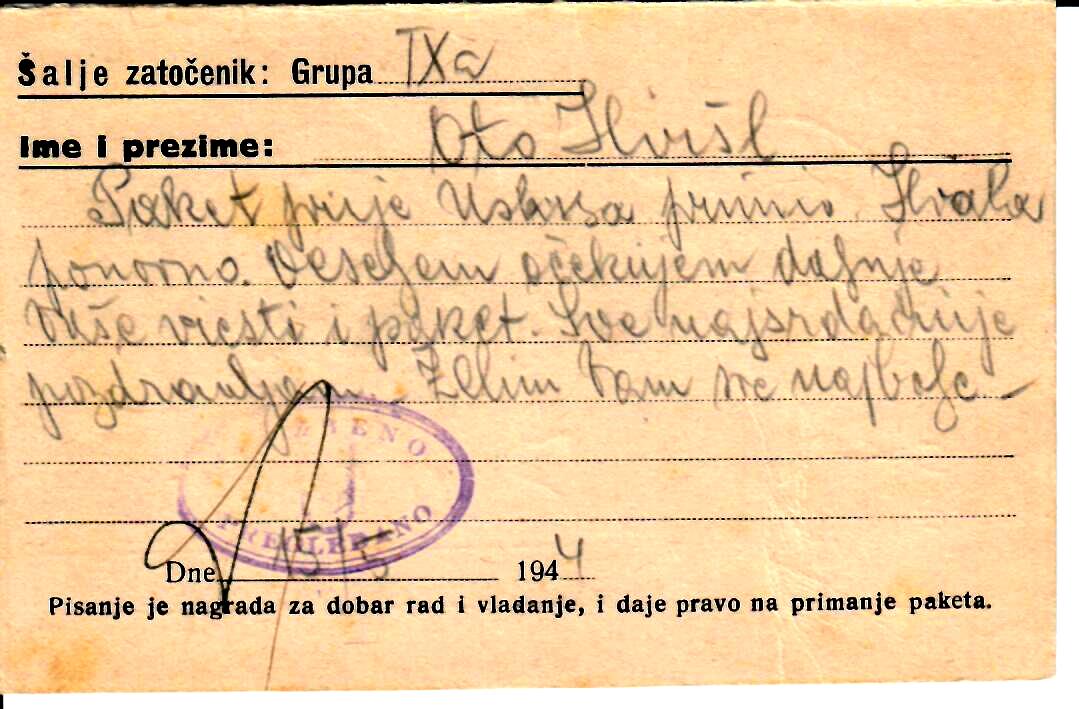 Šalje zatočenik: Grupa IXa
Ime i prezime: Oto Hviśl
Paket prije Uskrsa primio. Hvala
ponovno. Veseljem očekujem daljnje
Vaše viesti i paket. Sve najsrdačnije
pozdravljam. Želim Vam sve najbolje –
SLUŽBENO
PREGLEDANO
Dne 15/5 1944
Pisanje je nagrada za dobar rad i vladanje, i daje pravo na primanje paketa.